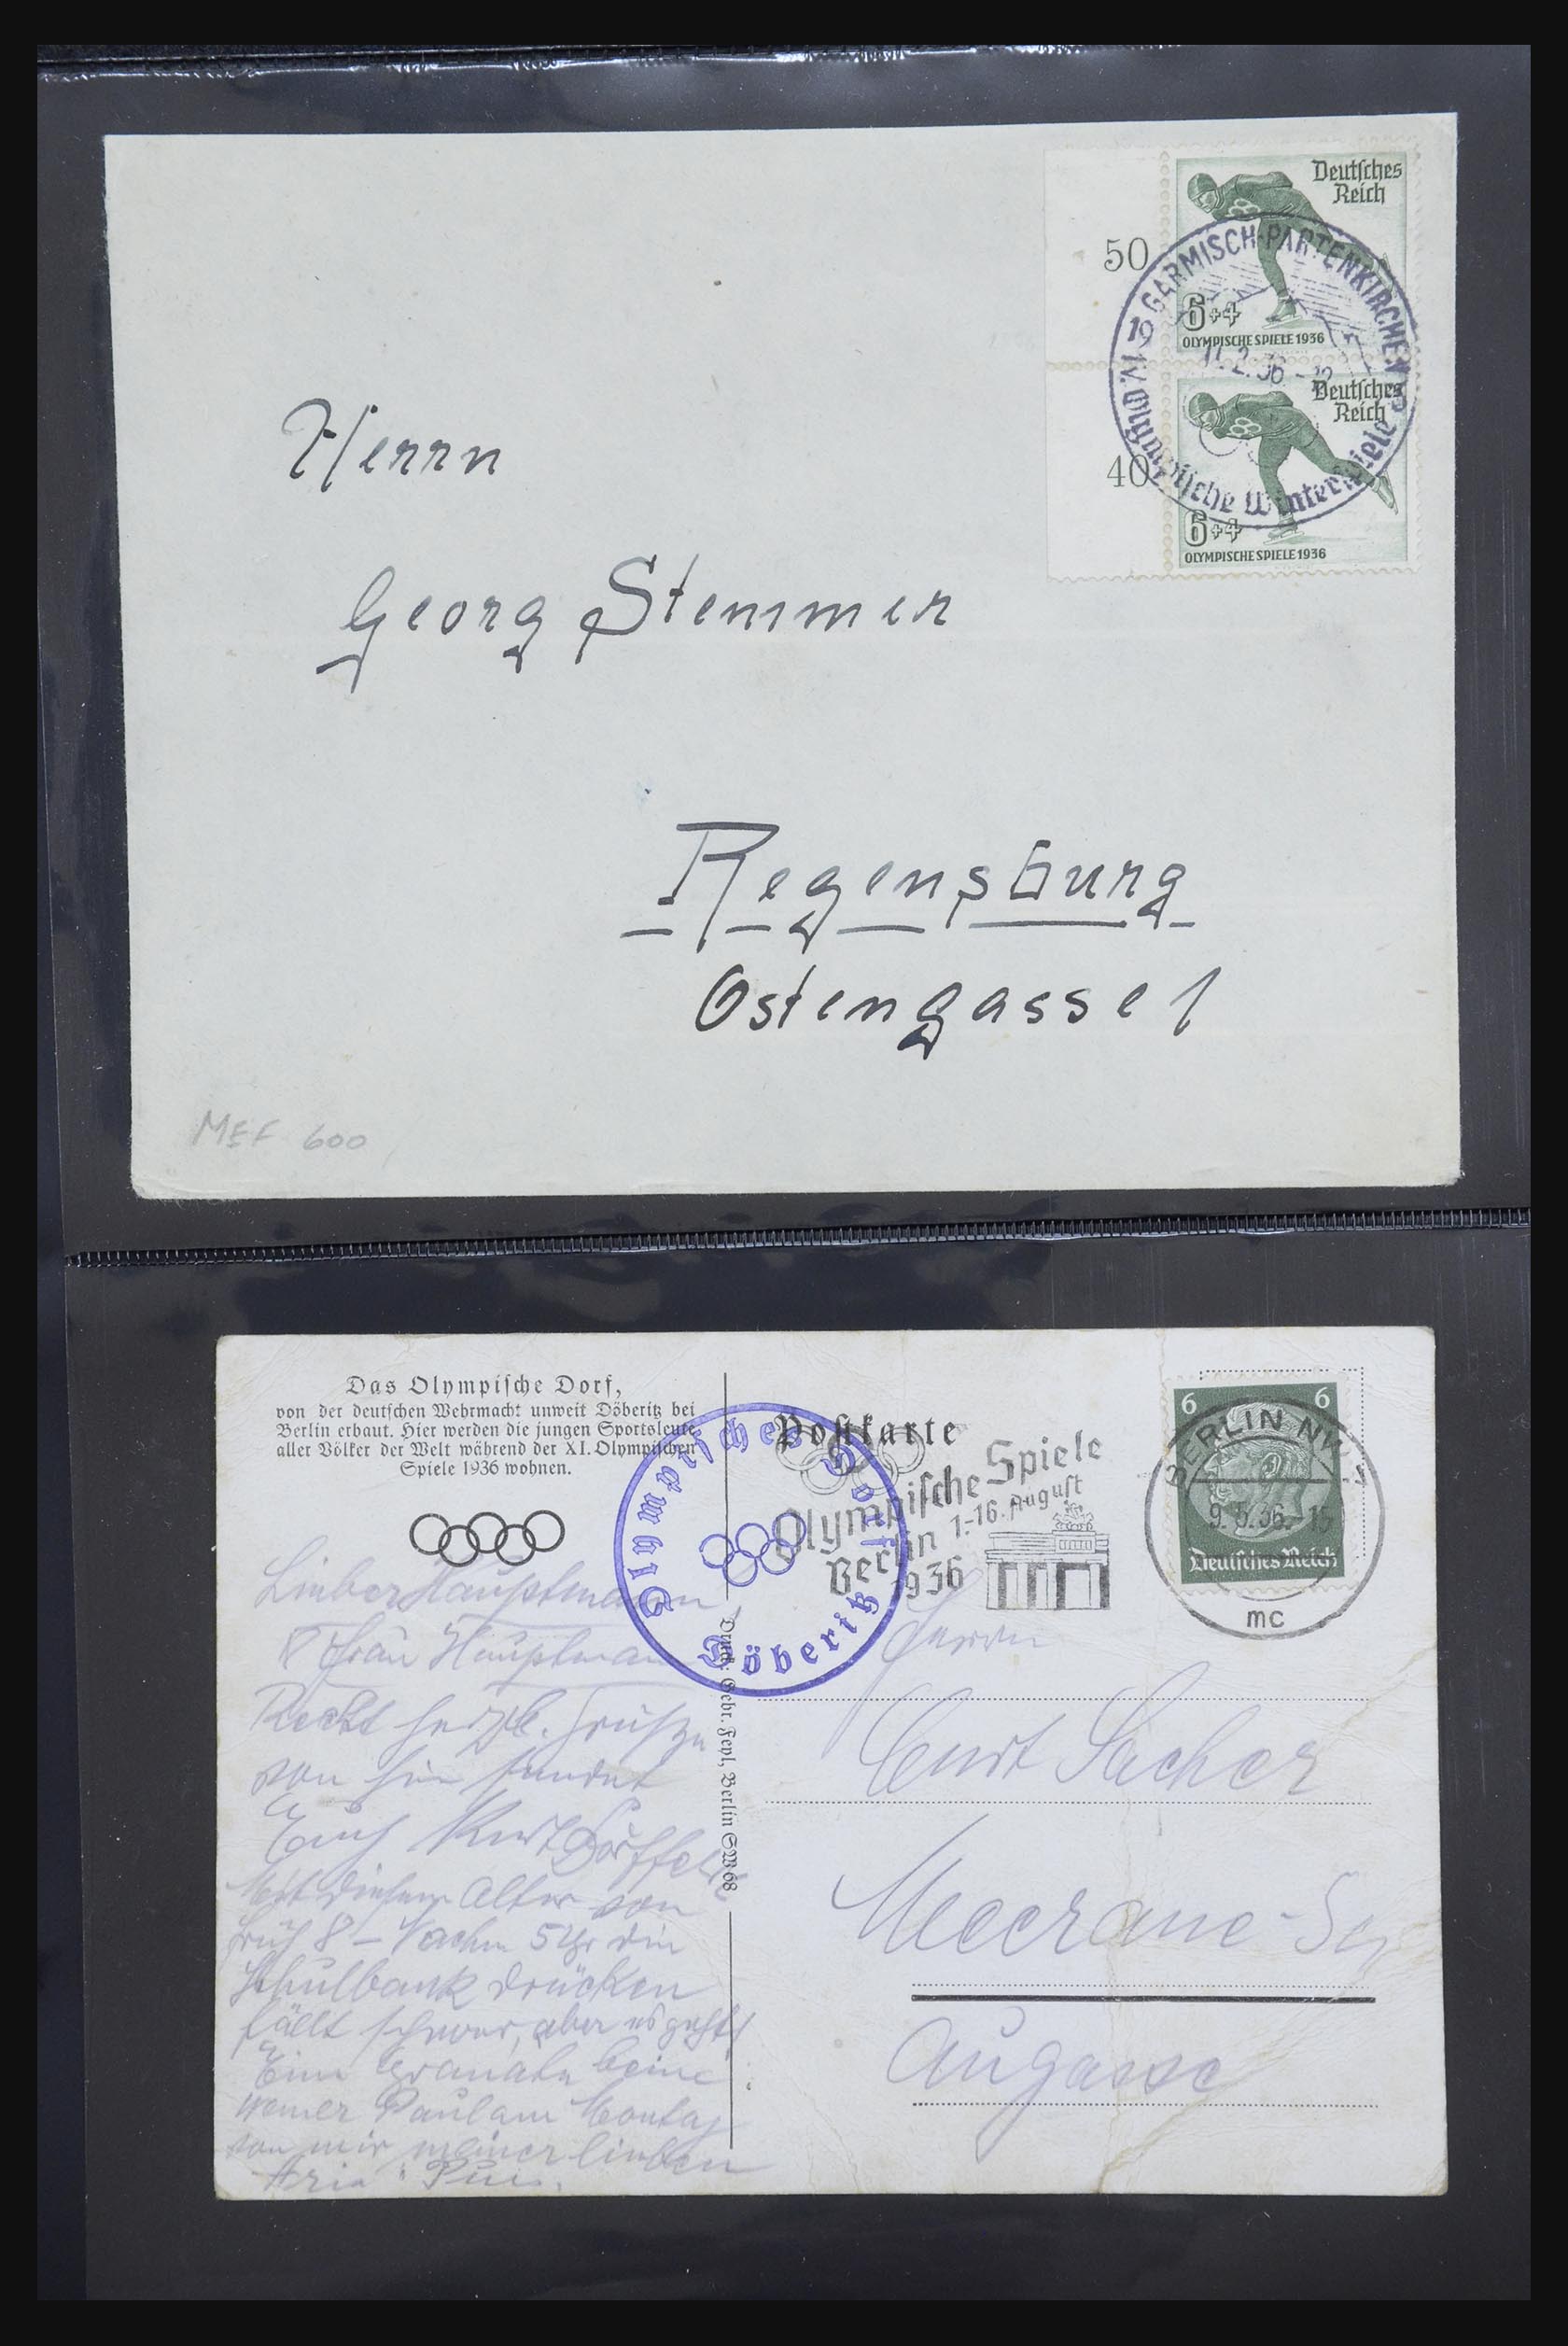 Deutsches
Reich
50
GARMISCH-PARTENKIRCHEN
6+4
OLYMPISCHE SPIELE 1936
2.36
Deutsches
Reich
40
IV. Olympische Winterspiele
6+4
OLYMPISCHE SPIELE 1936
Herrn
Georg Stemmer
Regensburg
Ostengasse 1
MEF 600
Das Olympische Dorf,
von der deutschen Wehrmacht unweit Döberitz bei
Berlin erbaut. Hier werden die jungen Sportsleute
aller Völker der Welt während der XI. Olympischen
Spiele 1936 wohnen.
Postkarte
Olympisches Dorf
Döberitz
Olympische Spiele
Berlin 1.-16. August
1936
6 6
BERLIN NW
9.5.36.-15
Deutsches Reich
mc
Druck: Gebr. Feyl, Berlin SW 68
Lieber Hauptmann
Frau Hauptmann
Recht herzl. Grüße
von hier sendet
Euch Kurt
Mit diesem Alter von
früh 8 - Nachm 5 Uhr die
Schulbank drücken
fällt schwer, aber es geht!
Eine Granate
Paul am Montag
von mir meiner lieben
Herrn
Curt Sacher
Meerane - Sa
Augasse